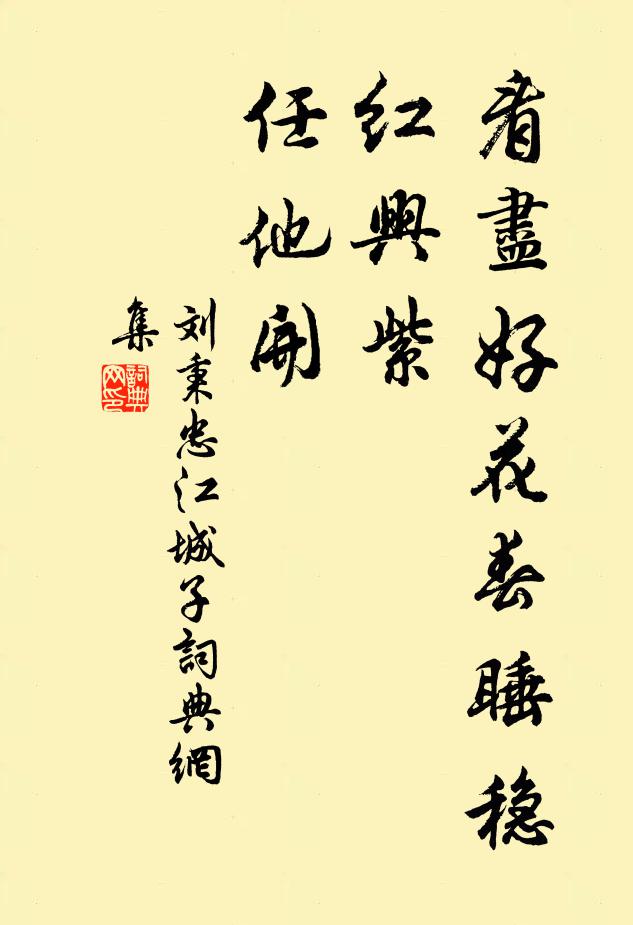 看盡好花春睡穩
紅與紫
任他開
刘秉忠江城子詞典網
集
詞典
网印